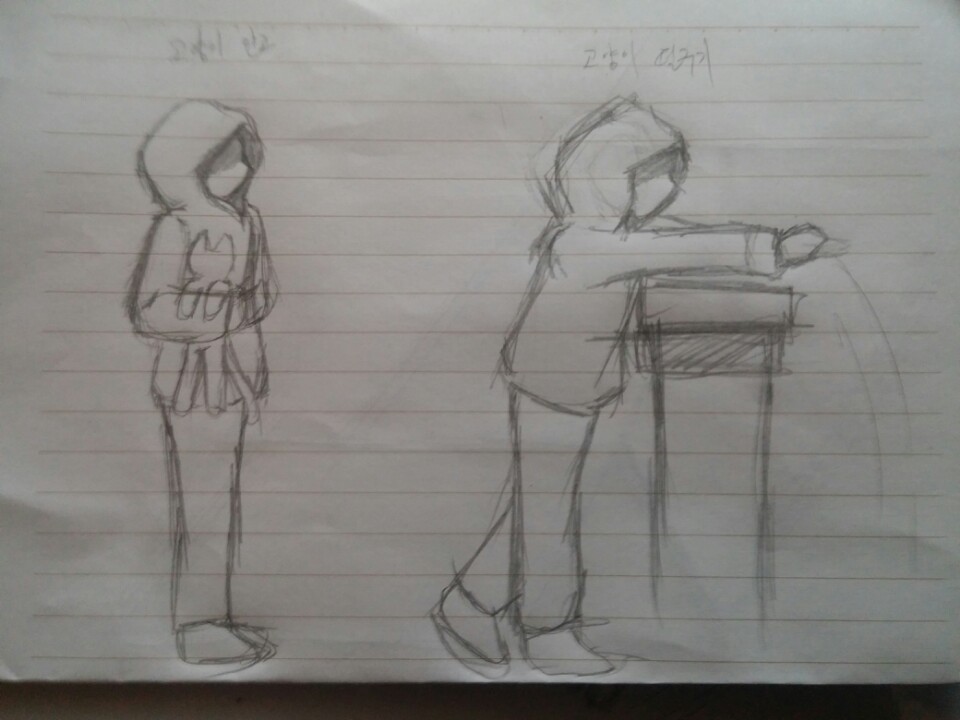 고양이 안고
고양이 떨구기